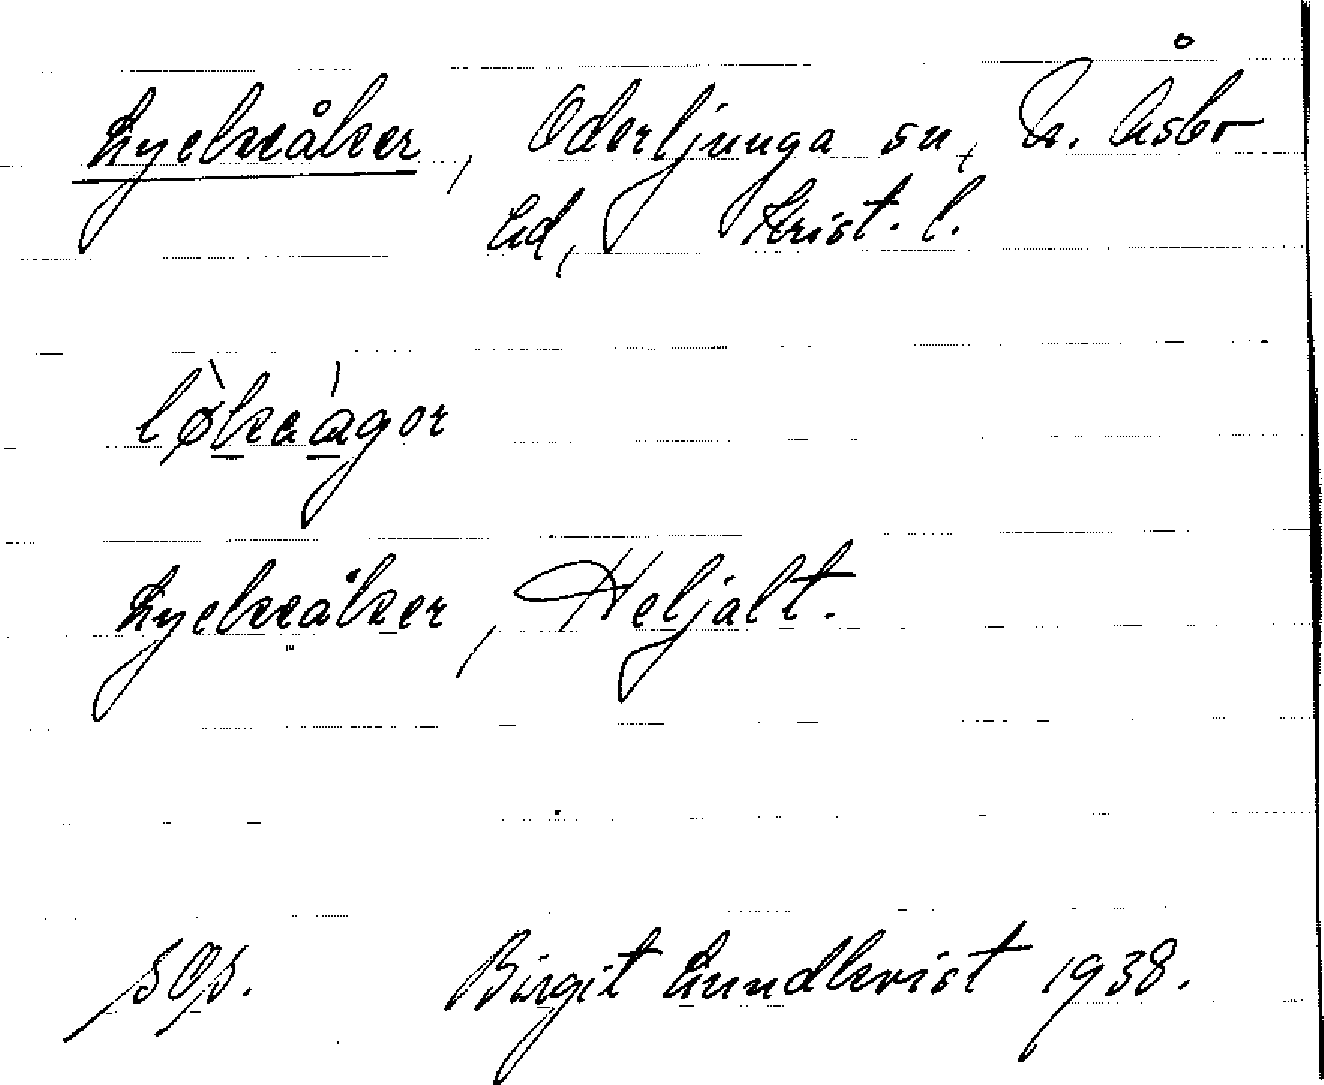 Lyckeåker, Oderljunga sn, N. Åsbo
hd, Krist. l.
lø̀kaágor
Lyckeåker, Heljalt.
sOs. Birgit Lundkvist 1938.